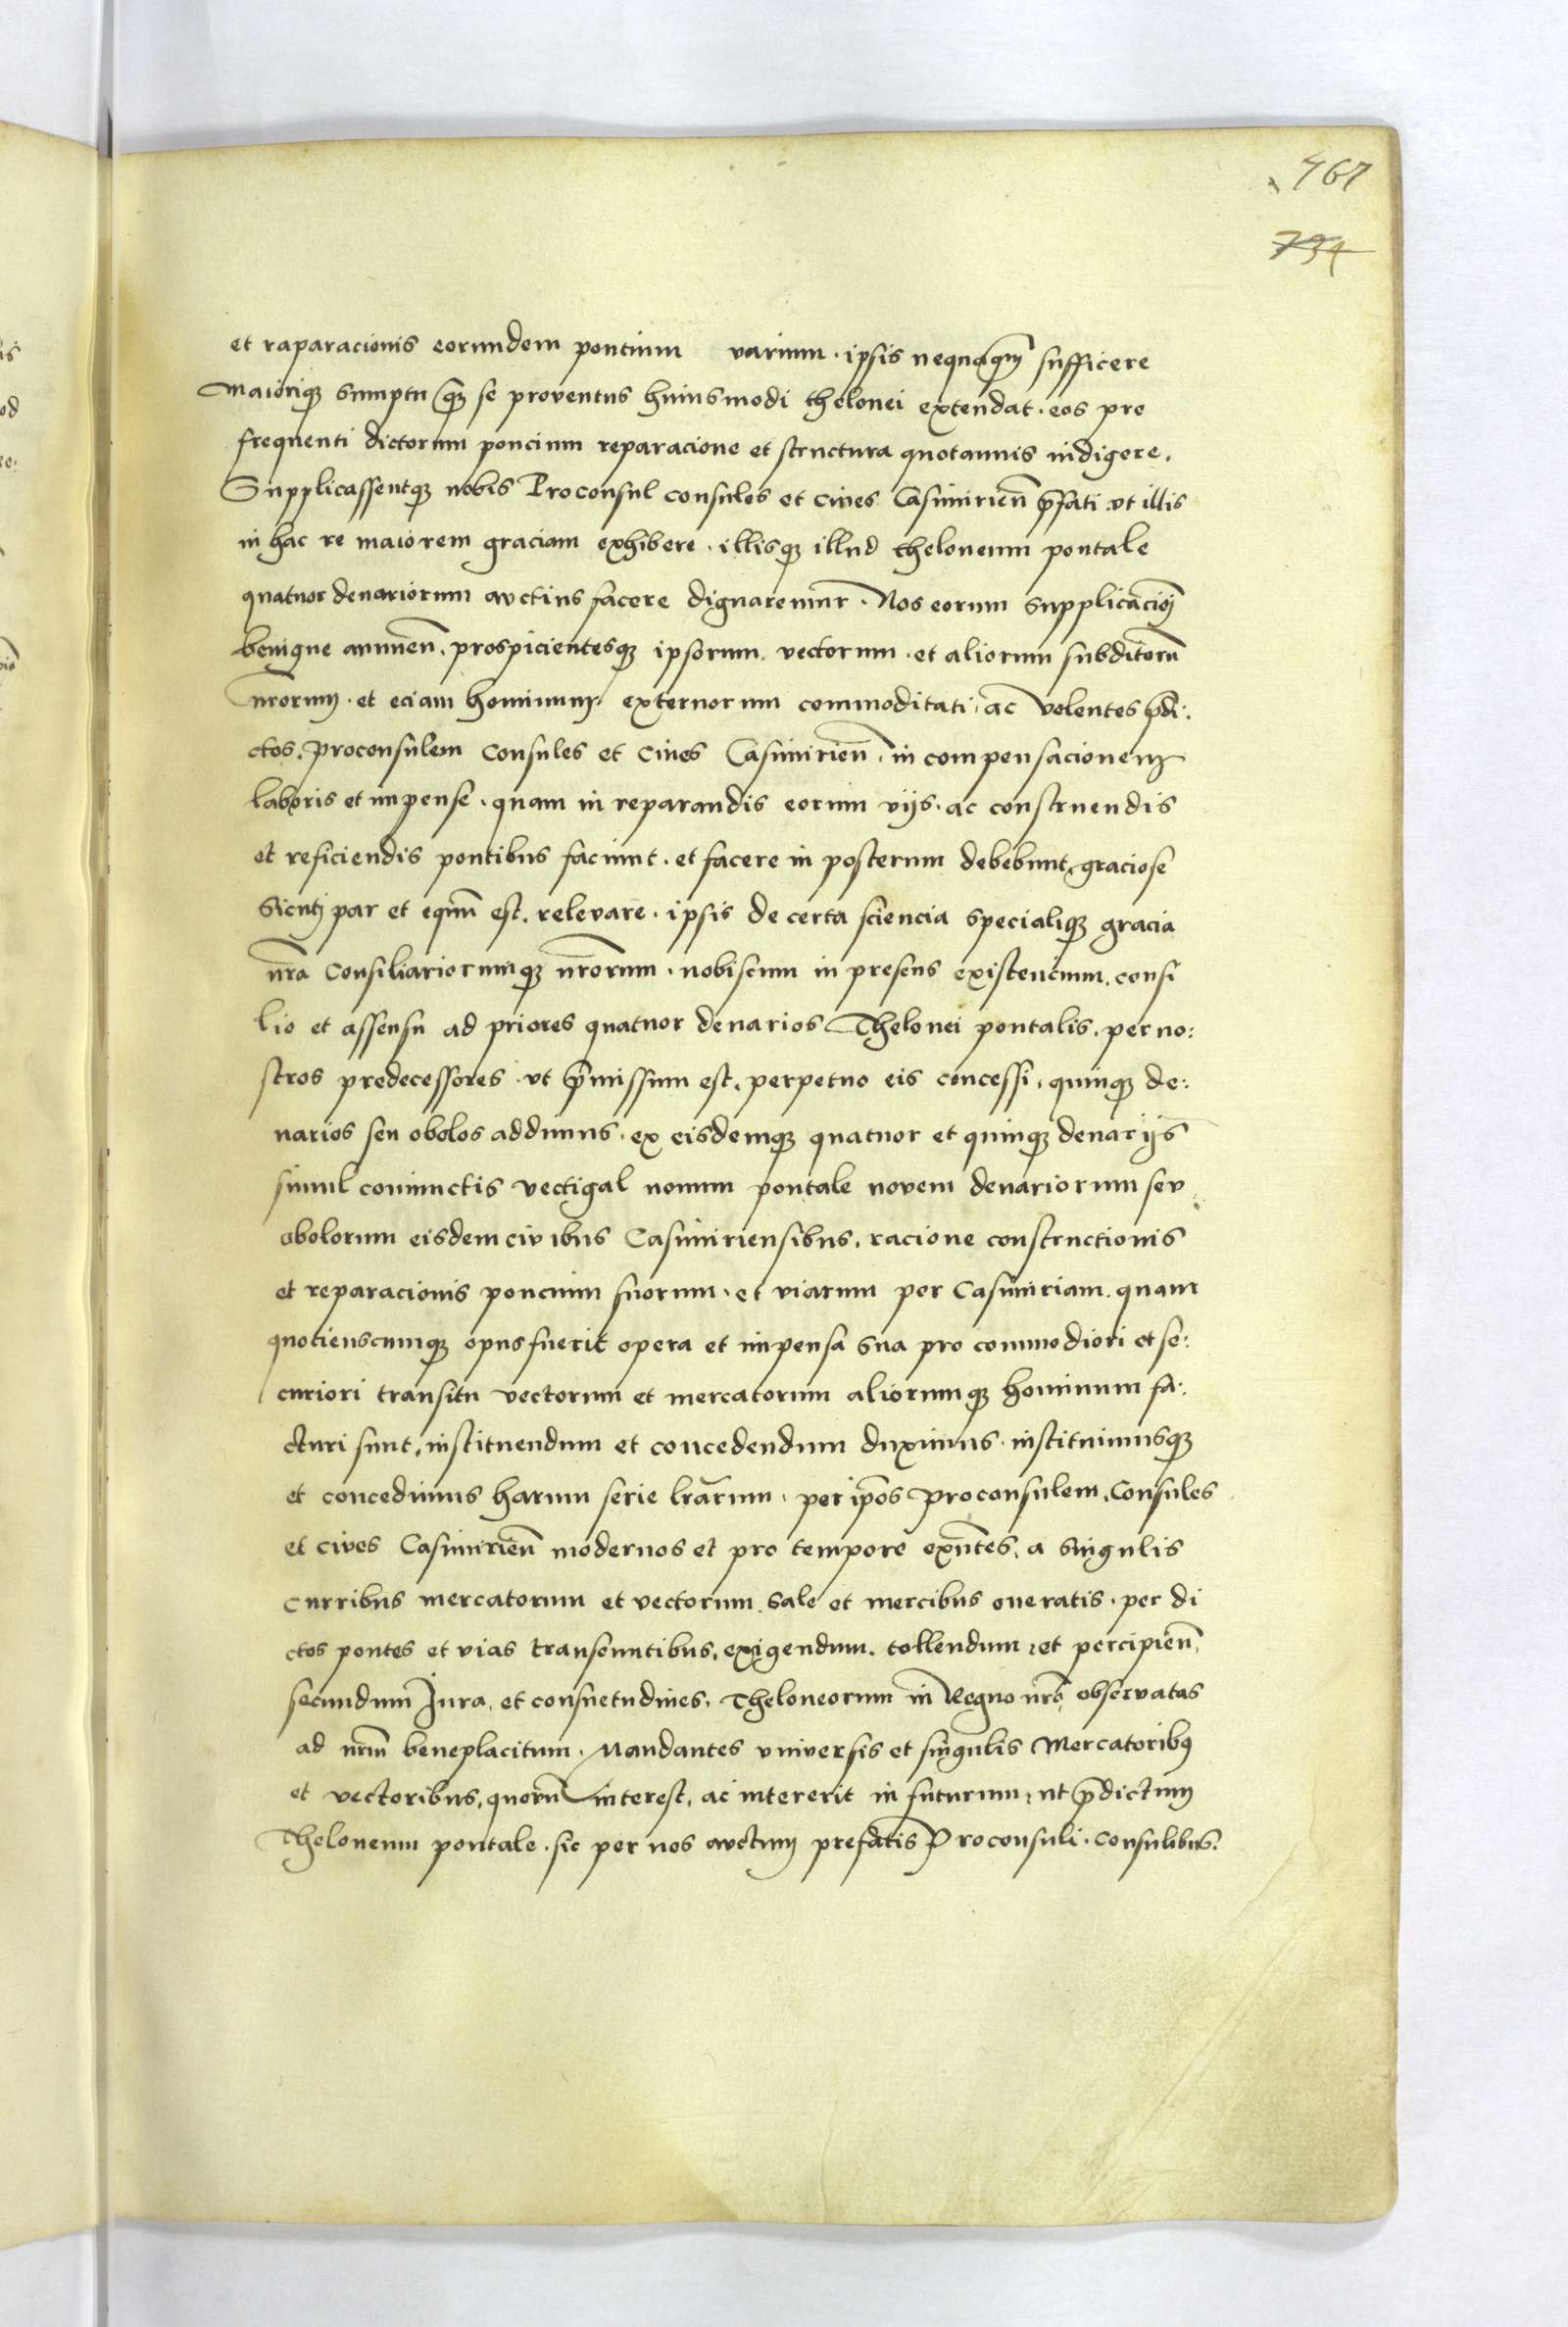 467
734
et raparacionis eorundem poncium varium · ipsis nequaq̃m sufficere
maioriqꝫ sumptu q̃ꝫ se proventus huiusmodi thelonei extendat · eos pro
frequenti dictorum poncium reparacione et structura quotannis indigere.
Supplicassentqꝫ nobis Proconsul consules et cives Casimirień p̃fati ut illis
in hac re maiorem graciam exhibere · illisqꝫ illud theloneum pontale
quatuor denariorum auctius facere dignaremur · Nos eorum supplicacioj
benigne annueń. prospicientesqꝫ ipsorum vectorum · et aliorum subditorũ
nrorum · et eciam hominum externorum commoditati, ac volentes p̃di:
ctos, proconsulem consules et cives Casimirień, in compensacionem
laboris et impense, quam in reparandis eorum vijs, ac construendis
et reficiendis pontibus faciunt · et facere in posterum debebunt, graciose
sicutj par et equũ est, relevare · ipsis de certa sciencia specialiqꝫ gracia
nr̃a Consiliariorumqꝫ nr̃orum · nobiscum in presens existencium, consi
lio et assensu ad priores quatuor denarios Thelonei pontalis, per no:
stros predecessores · ut p̃missum est, perpetuo eis concessi, quinqꝫ de:
narios seu obolos addimus · ex eisdemqꝫ quatuor et quinqꝫ denarijs
simul coniunctis vectigal nouum pontale novem denariorum seu
obolorum eisdem civibus Casimiriensibus, racione constructionis
et reparacionis poncium suorum · et viarum per Casimiriam, quam
quocienscumqꝫ opus fuerit opera et impensa sua pro commodiori et se:
curiori transitu vectorum et mercatorum aliorumqꝫ hominum fa:
cturi sunt, instituendum et concedendum duximus · instituimusqꝫ
et concedimus harum serie lr̃arum · per ip̃os proconsulem, Consules
et cives Casimirień modernos et pro tempore exñtes, a singulis
curribus mercatorum et vectorum sale et mercibus oneratis · per di
ctos pontes et vias transeuntibus, exigendum, tollendum, et percipień,
secundum Iura, et consuetudines, Theloneorum in Regno nr̃o observatas
ad nr̃m beneplacitum · Mandantes universis et singulis Mercatoribꝰ
et vectoribus, quorũ interest, ac intererit in futurum, ut p̃dictum
Theloneum pontale · sic per nos auctum prefatis Proconsuli · consulibus.